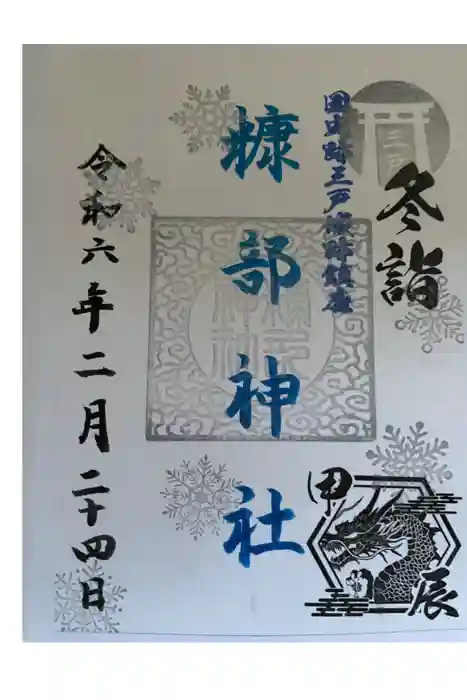 三戸
冬詣
国史跡三戸城跡鎮座
糠部神社
令和六年二月二十四日
甲辰